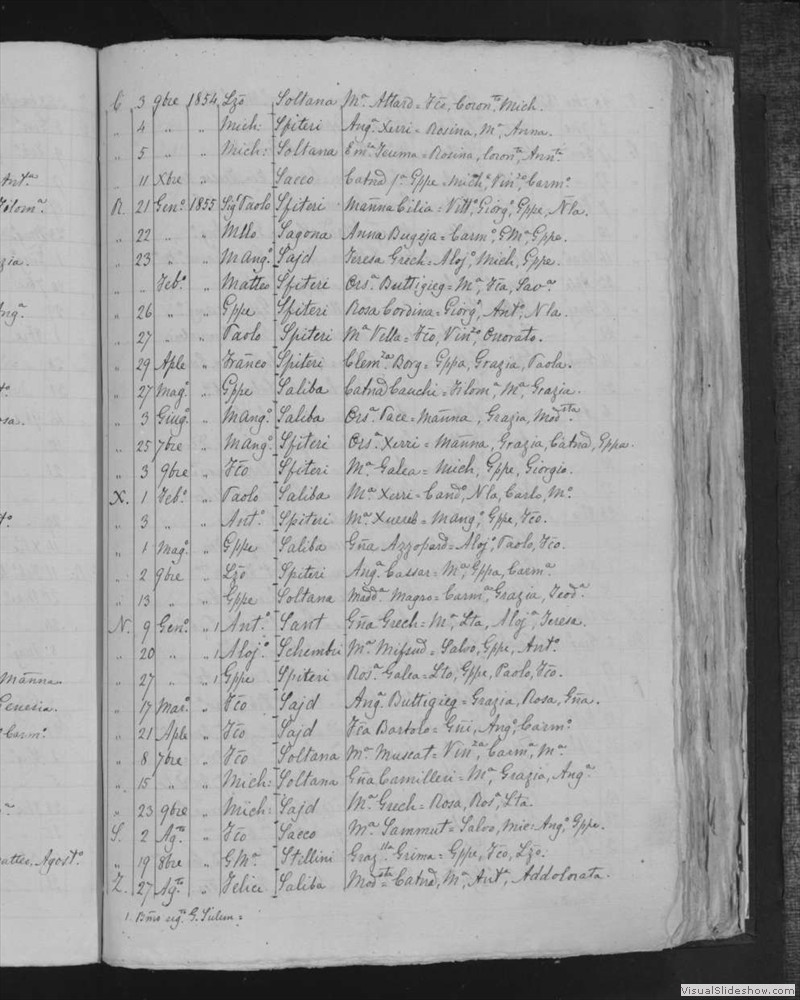 C 3 9bre 1854 Lzo Soltana Ma Attard = Fco, Coronta Mich.
" 4 " " Mich: Spiteri Anga Xerri = Rosina, Ma, Anna.
" 5 " " Mich: Soltana Emla Teuma = Rosina, Coronta, Annta
" 11 Xbre " Sacco Catnd Gppe = Micho, Vinzo Carmo
R. 21 Geno 1855 Sigr Paolo Spiteri Manna Cilia = Vitto, Giorgo, Gppe, Nla.
" 22 " " Mtto Sagona Anna Bugeja = Carmo, GMa, Gppe.
" 23 " " Mango Sajd Teresa Grech = Alojo, Mich, Gppe.
" " Febo " Matteo Spiteri Orsa Buttigieg = Ma, Fca, Sava
" 26 " " Gppe Spiteri Rosa Cordina = Giorgo, Anto, Nla.
" 27 " " Paolo Spiteri Ma Vella = Fco, Vinzo Onorato.
" 29 Aple " Franco Spiteri Clemza Borg = Gppa, Grazia, Paola.
" 27 Mago " Gppe Saliba Catnd Cauchi = Filoma, Ma, Grazia.
" 3 Giugo " Mango Saliba Orsa Pace = Manna, Grazia, Modsta
" 25 7bre " Mango Spiteri Orsa Xerri = Manna, Grazia, Catnd, Gppa.
" 3 9bre " Fco Spiteri Ma Galea = Mich, Gppe, Giorgio.
X. 1 Febo " Paolo Saliba Ma Xerri = Cando, Nla, Carlo, Mo
" 3 " " Anto Spiteri Ma Xuereb = Mango, Gppe, Fco.
" 1 Mago " Gppe Saliba Gna Azzopard = Alojo, Paolo, Fco.
" 2 9bre " Lzo Spiteri Anga Cassar = Ma, Gppa, Carma
" 13 " " Gppe Soltana Madda Magro = Carma, Grazia, Teoda
N. 9 Geno " 1 Anto Sant Gna Grech = Ma, Lta, Aloja Teresa.
" 20 " 1 Alojo Schembri Ma Mifsud = Salvo, Gppe, Anto
" 27 " 1 Gppe Spiteri Rosa Galea = Lto, Gppe, Paolo, Fco.
" 17 Mar. " Fco Sajd Anga Buttigieg = Grazia, Rosa, Gna.
" 21 Aple " Fco Sajd Fca Bartolo = Gni, Ango, Carmo
" 8 7bre " Fco Soltana Ma Muscat = Vinza, Carma, Ma
" 15 " " Mich: Soltana Gna Camilleri = Ma Grazia, Anga
" 23 9bre " Mich: Sajd Ma Grech = Rosa, Rosa, Lta.
S. 2 Agto " Fco Sacco Ma Sammut = Salvo, Mic: Ango, Gppe.
" 19 8bre " GMa Stellini Grazlla Grima = Gppe, Fco, Lzo.
Z. 27 Agto " Felice Saliba Modsta = Catnd, Ma, Anta, Addolorata.
Anta
Filoma
Manna
Genesia.
Carmo
Agosto
VisualSlideshow.com